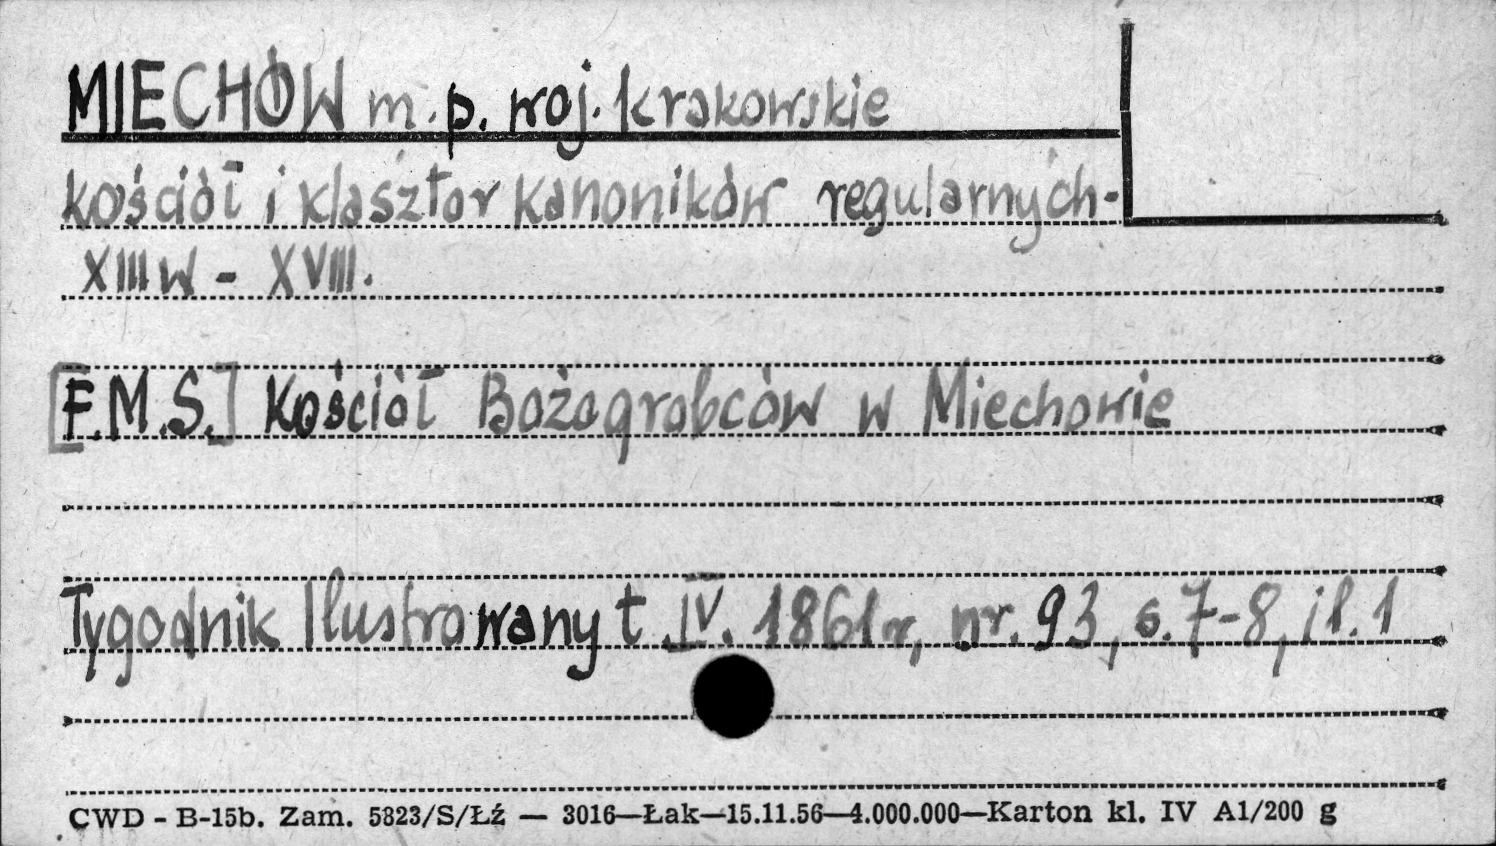 MIECHÓW m. p. woj. krakowskie
kościół i klasztor kanoników regularnych-
XIII w - XVIII.
[F.M.S.] Kościół Bożogrobców w Miechowie
Tygodnik Ilustrowany t. IV. 1861 r, nr. 93, s. 7-8, il. 1
CWD - B-15b. Zam. 5823/S/Łź — 3016—Łak—15.11.56—4.000.000—Karton kl. IV A1/200 g